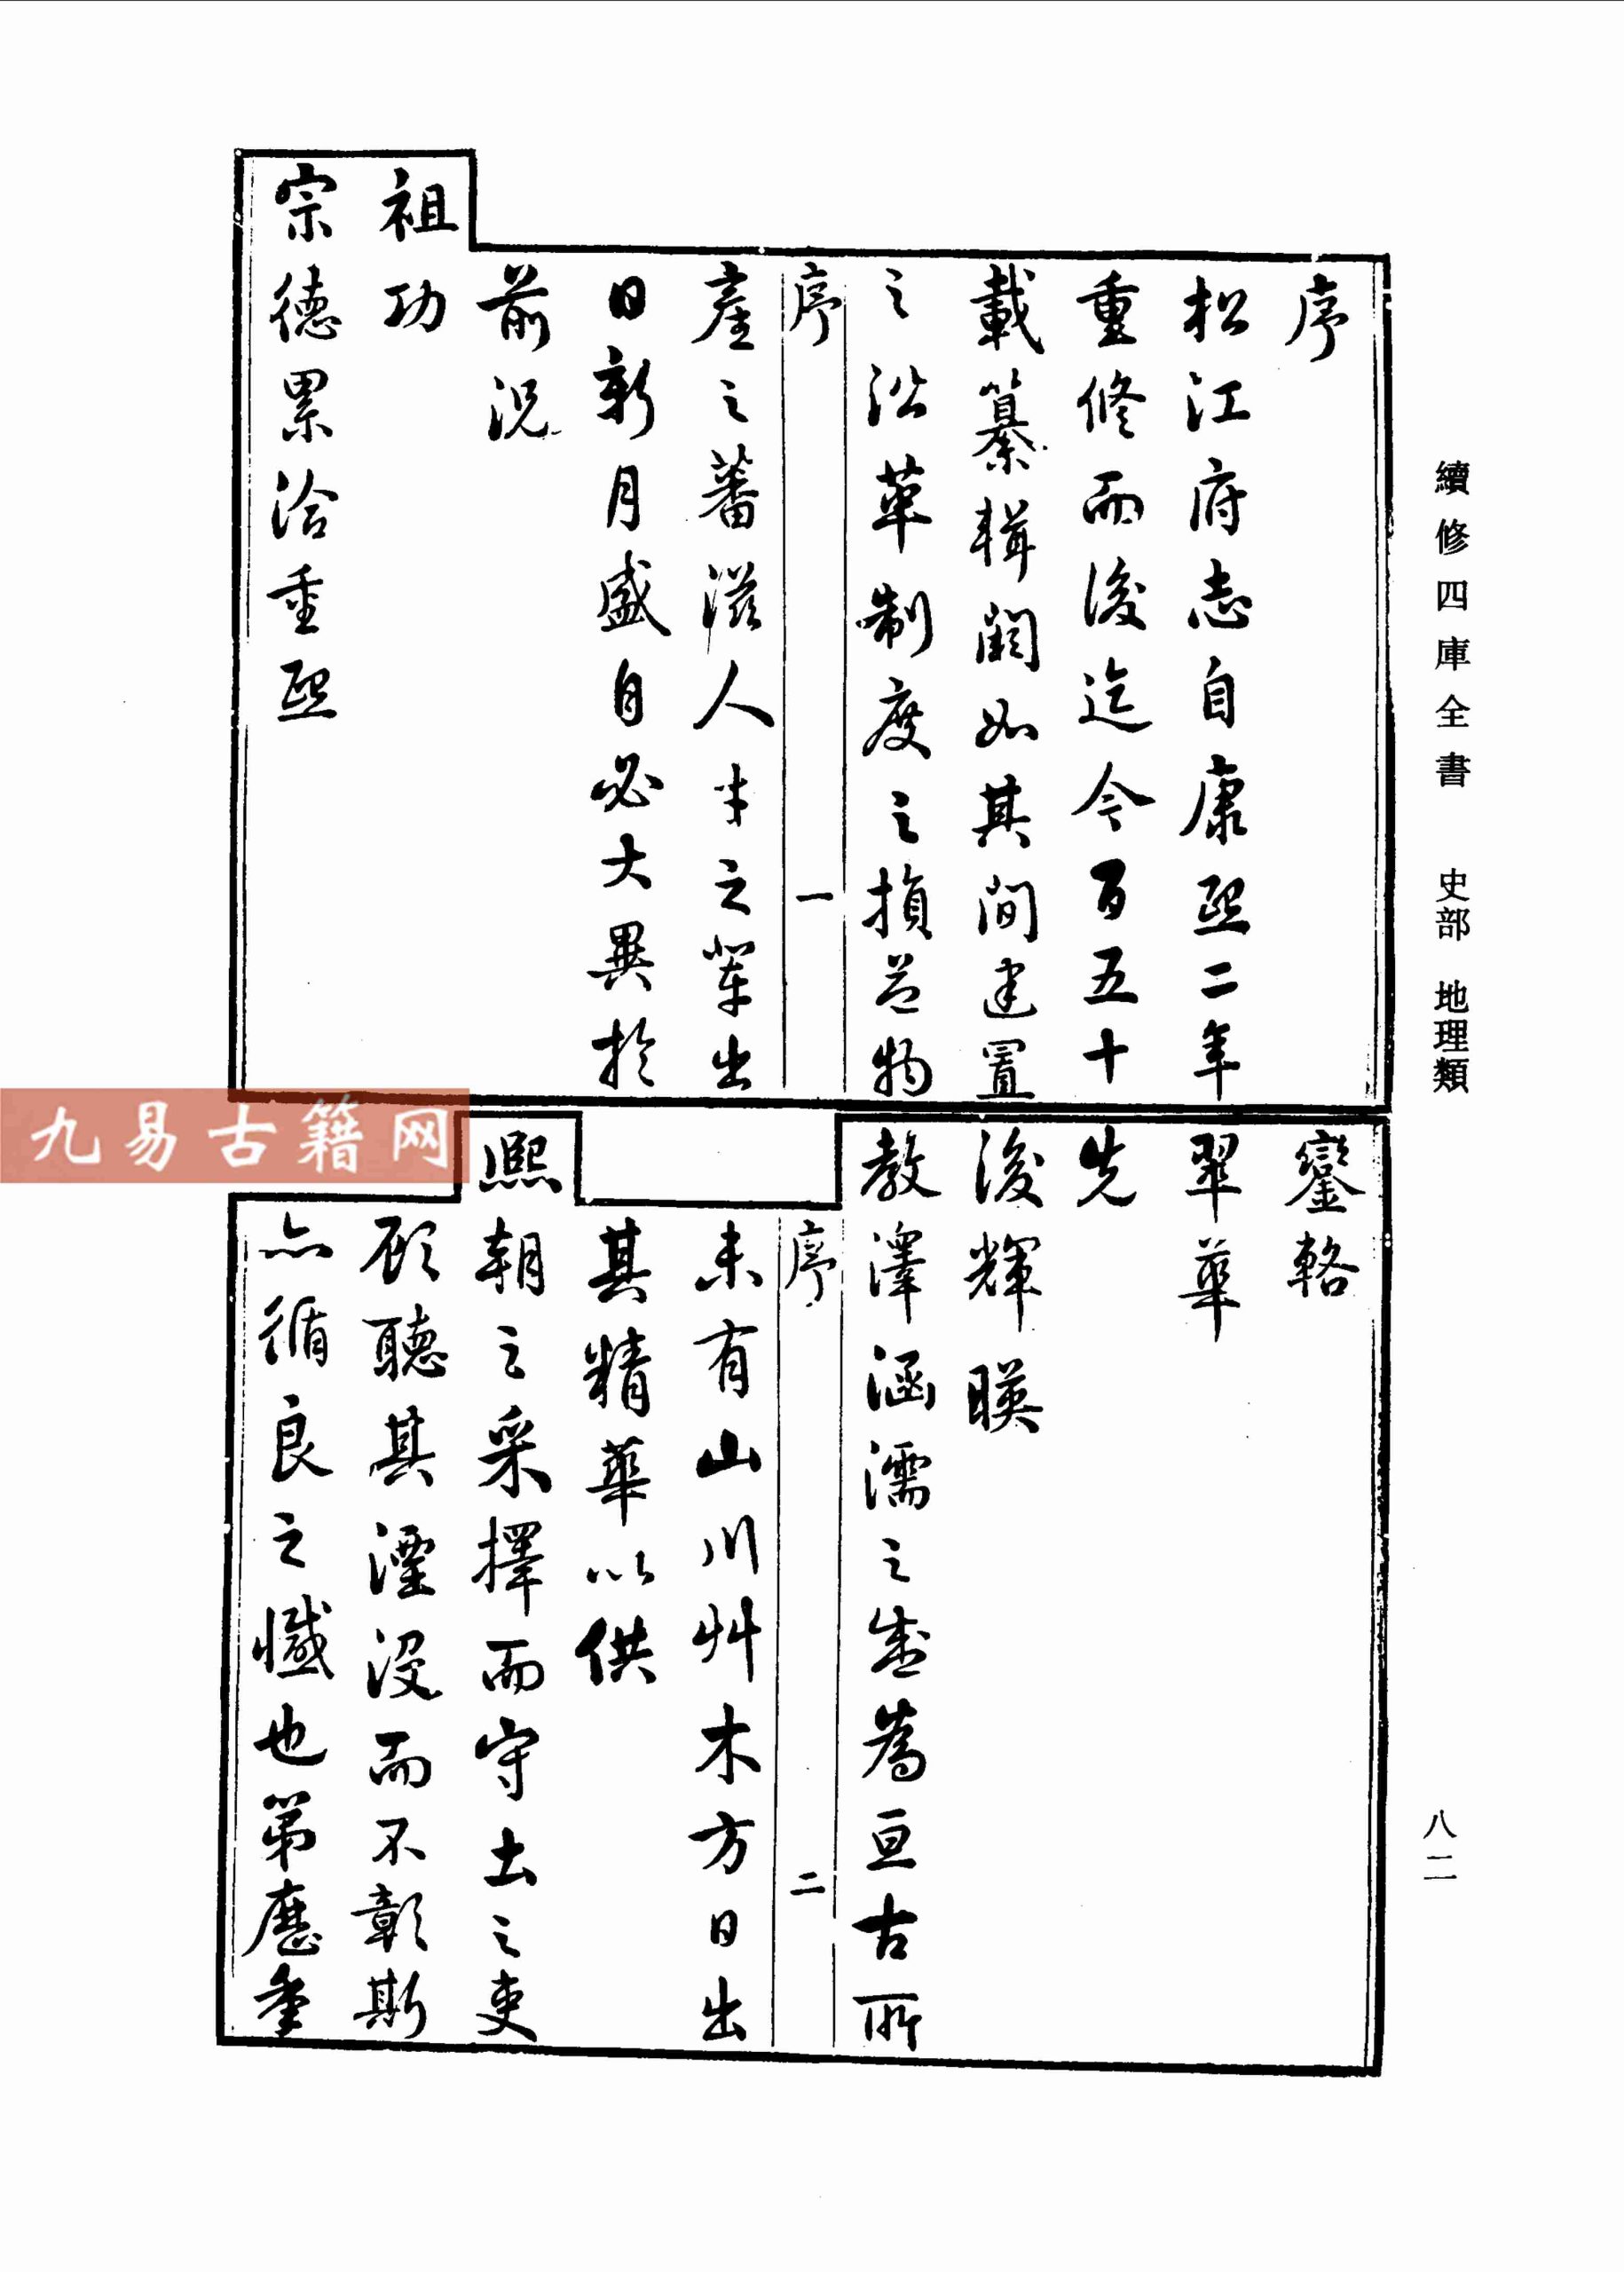 續修四庫全書 史部 地理類
八二
序
松江府志自康熙二年
重修而後迄今百五十
載纂輯闕如其間建置
之沿革制度之損益物
序 一
產之蕃滋人才之輩出
日新月盛自必大異於
前況
祖功
宗德累洽重熙
鑾輅
翠華
先
後輝暎
教澤涵濡之盛為亘古所
序 二
未有山川艸木方日出
其精華以供
熙朝之采擇而守土之吏
顧聽其湮沒而不彰斯
亦循良之憾也第歷年
九易古籍网